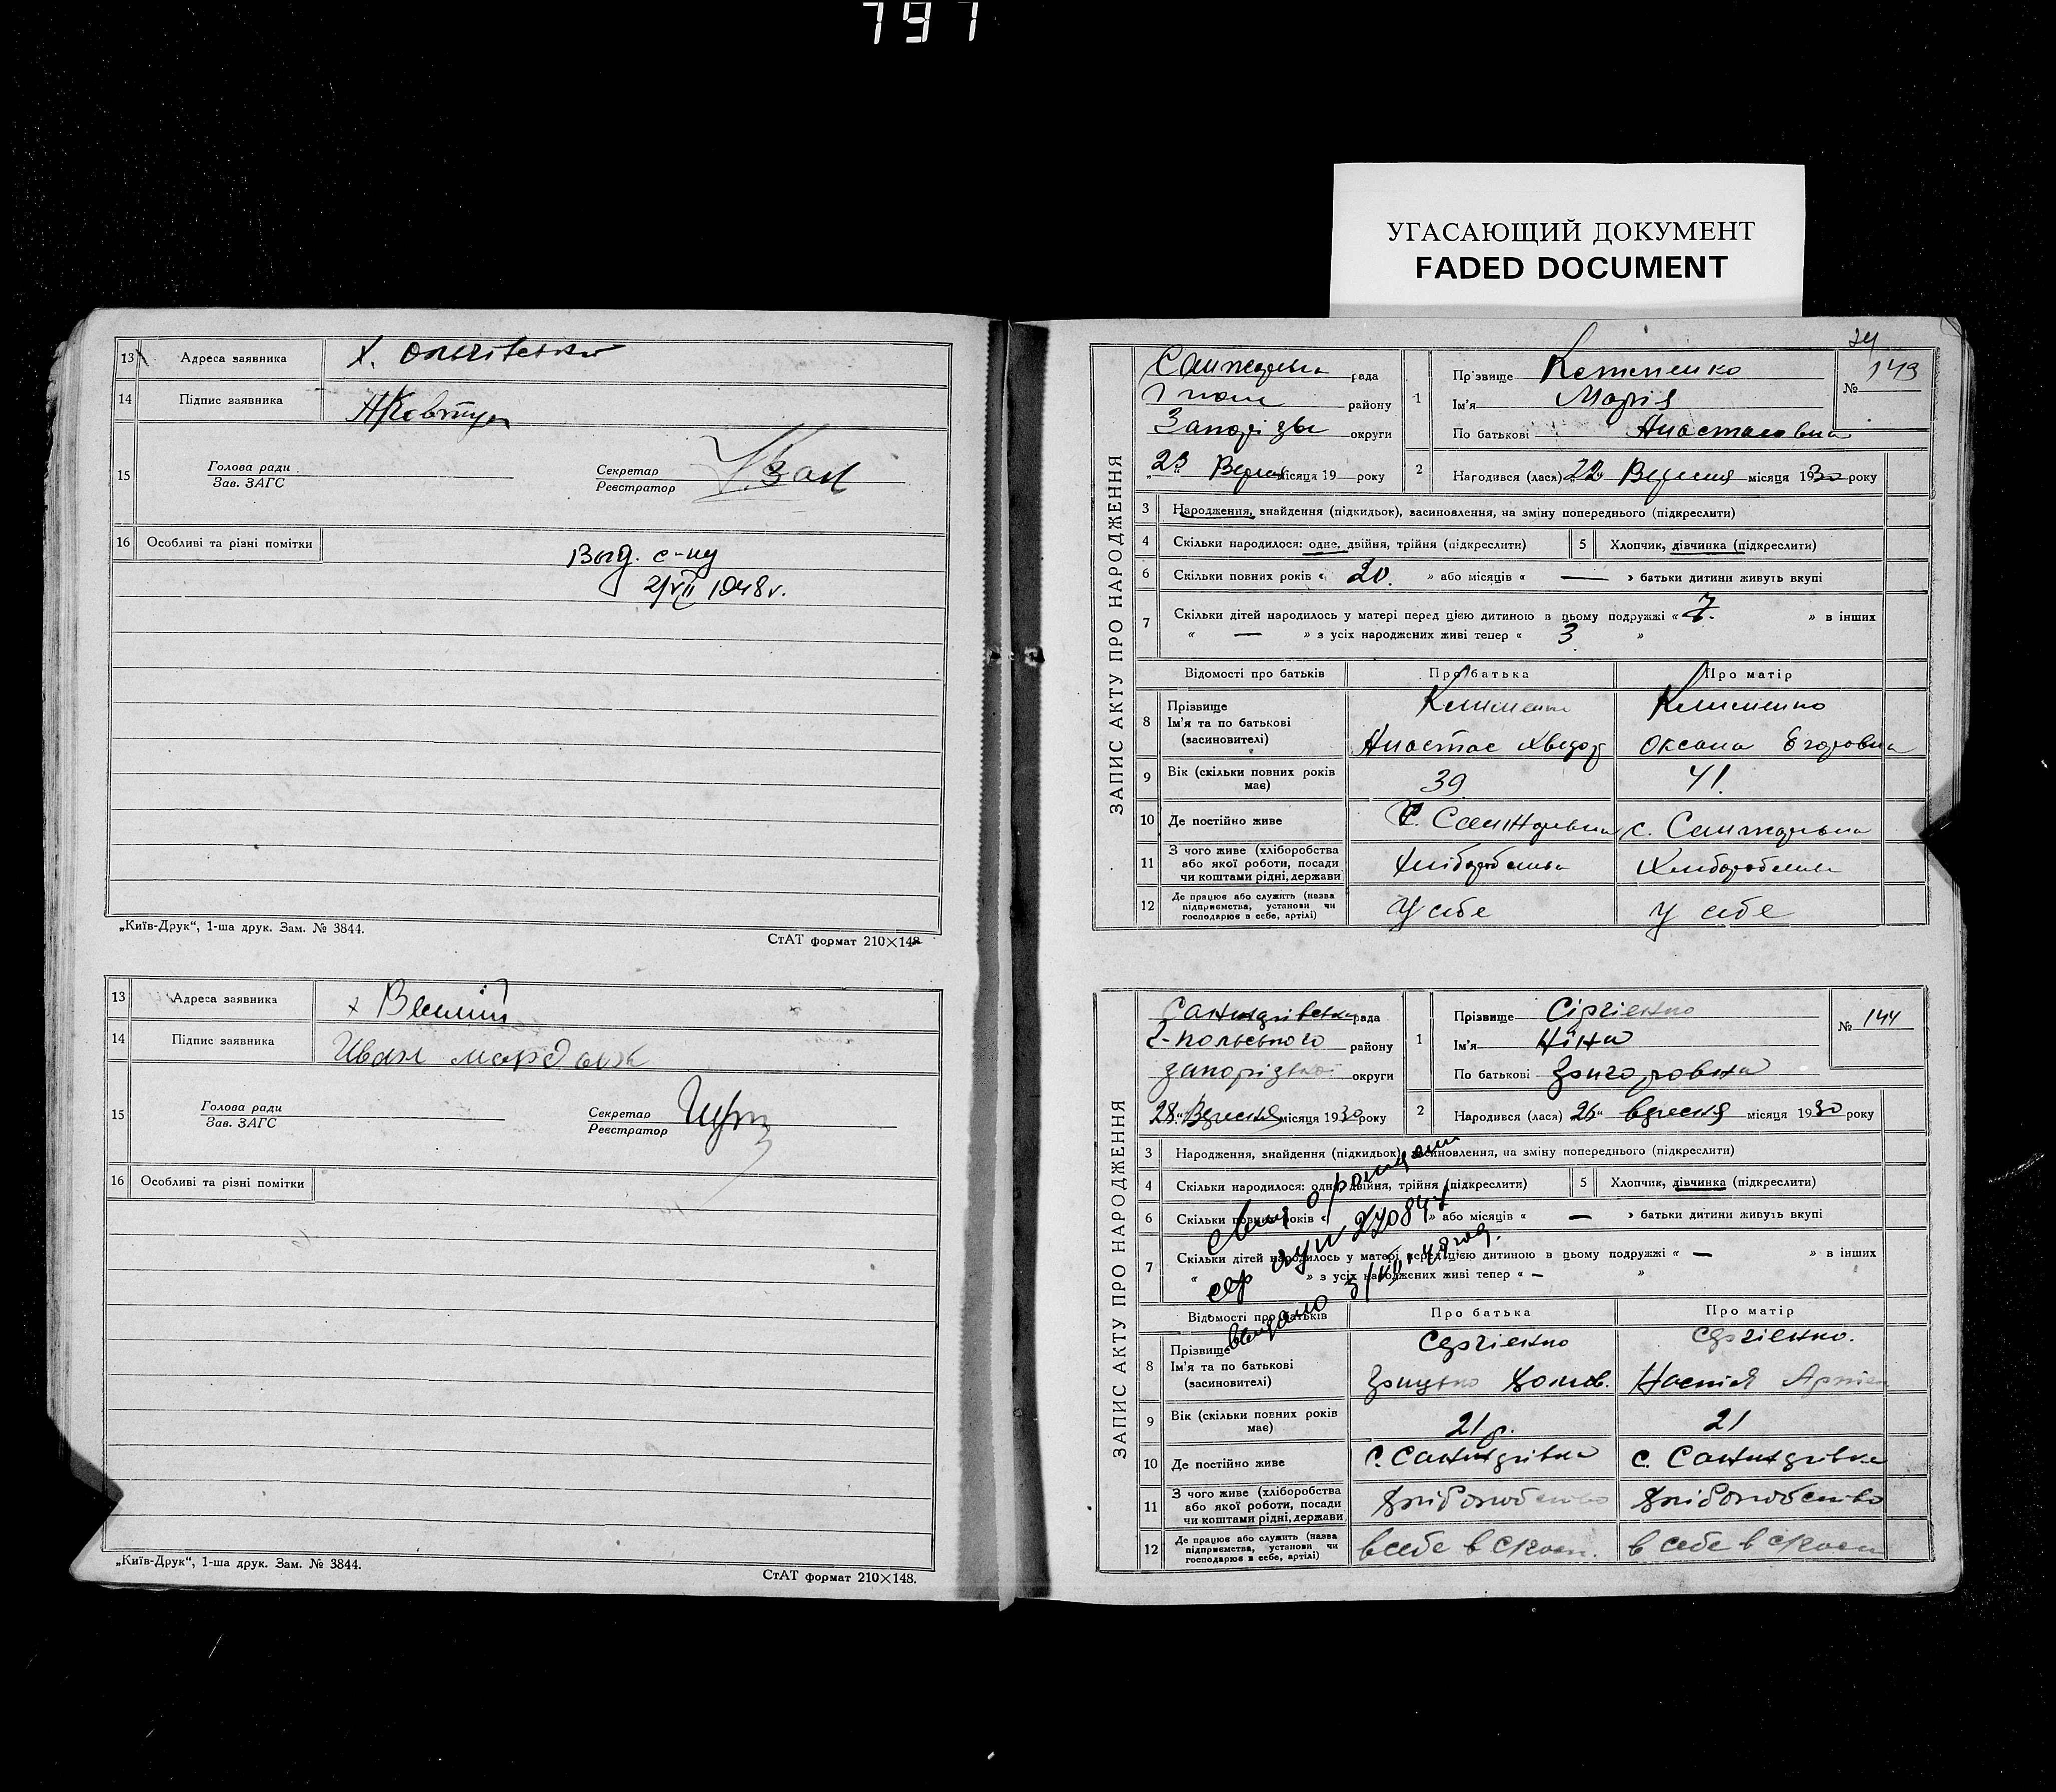 797
УГАСАЮЩИЙ ДОКУМЕНТ
FADED DOCUMENT
13 Адреса заявника х.
14 Підпис заявника АКовтун
15 Голова ради Зав. ЗАГС Секретар Реєстратор
16 Особливі та різні помітки
Выд. с-ву
2/VII 1948 г.
„Київ-Друк“, 1-ша друк. Зам. № 3844.
СтАТ формат 210×148
13 Адреса заявника х
14 Підпис заявника Иван
15 Голова ради Зав. ЗАГС Секретар Реєстратор
16 Особливі та різні помітки
„Київ-Друк“, 1-ша друк. Зам. № 3844.
СтАТ формат 210×148.
ЗАПИС АКТУ ПРО НАРОДЖЕННЯ
рада
району
Запорізьк округи
„23 Верес місяця 19 року
№ 143
1 Прізвище Клименко
Ім'я Марія
По батькові Анастасовна
2 Нагодився (лася) „22“ Вересня місяця 1930 року
3 Народження, знайдення (підкидьок), засиновлення, на зміну попереднього (підкреслити)
4 Скільки народилося: одне, двійня, трійня (підкреслити) 5 Хлопчик, дівчинка (підкреслити)
6 Скільки повних років « 20. » або місяців « — » батьки дитини живуть вкупі
7 Скільки дітей народилось у матері перед цією дитиною в цьому подружжі « 7. » в інших
« — » з усіх народжених живі тепер « 3 »
Відомості про батьків Про батька Про матір
8 Прізвище Клименко Клименко
Ім'я та по батькові (засиновителі) Анастас Хведор Оксана Егоровна
9 Вік (скільки повних років має) 39 41.
10 Де постійно живе с. с.
11 З чого живе (хліборобства або якої роботи, посади чи коштами рідні, держави
12 Де працює або служить (назва підприємства, установи чи господарює в себе, артілі) У себе У себе
ЗАПИС АКТУ ПРО НАРОДЖЕННЯ
рада
району
запорізької округи
28 „Вересня місяця 1930 року
№ 144
1 Прізвище Сіргієнко
Ім'я Ніна
По батькові Григоровна
2 Народився (лася) 26“ вересня місяця 1930 року
3 Народження, знайдення (підкидьок), засиновлення, на зміну попереднього (підкреслити)
4 Скільки народилося: одне, двійня, трійня (підкреслити) 5 Хлопчик, дівчинка (підкреслити)
6 Скільки повних років « » або місяців « — » батьки дитини живуть вкупі
7 Скільки дітей народилось у матері перед цією дитиною в цьому подружжі « — » в інших
« » з усіх народжених живі тепер « — »
270847
выдано
Відомості про батьків Про батька Про матір
8 Прізвище Сергієнко Сергієнко.
Ім'я та по батькові (засиновителі)
9 Вік (скільки повних років має) 21 р. 21
10 Де постійно живе с. с.
11 З чого живе (хліборобства або якої роботи, посади чи коштами рідні, держави хліборобство хліборобство
12 Де працює або служить (назва підприємства, установи чи господарює в себе, артілі) в себе в себе